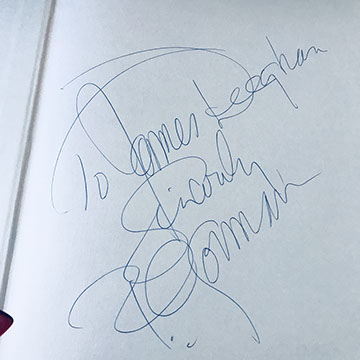 To James Keeghan
Sincerely